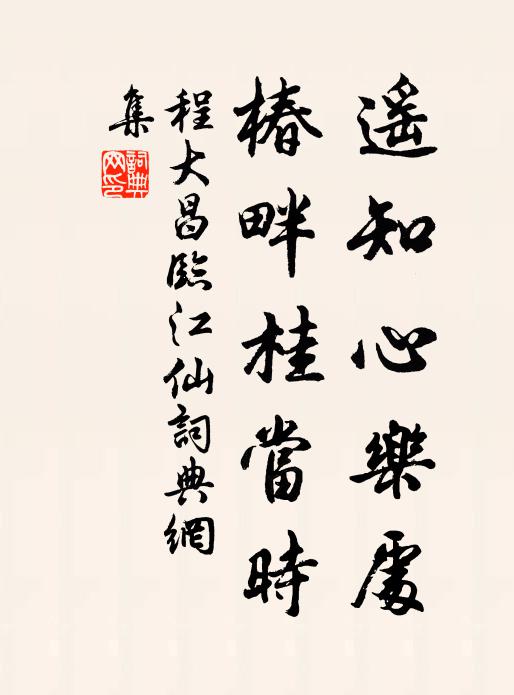 遥知心樂處
椿畔桂當時
程大昌臨江仙詞典網
集
詞典
网印